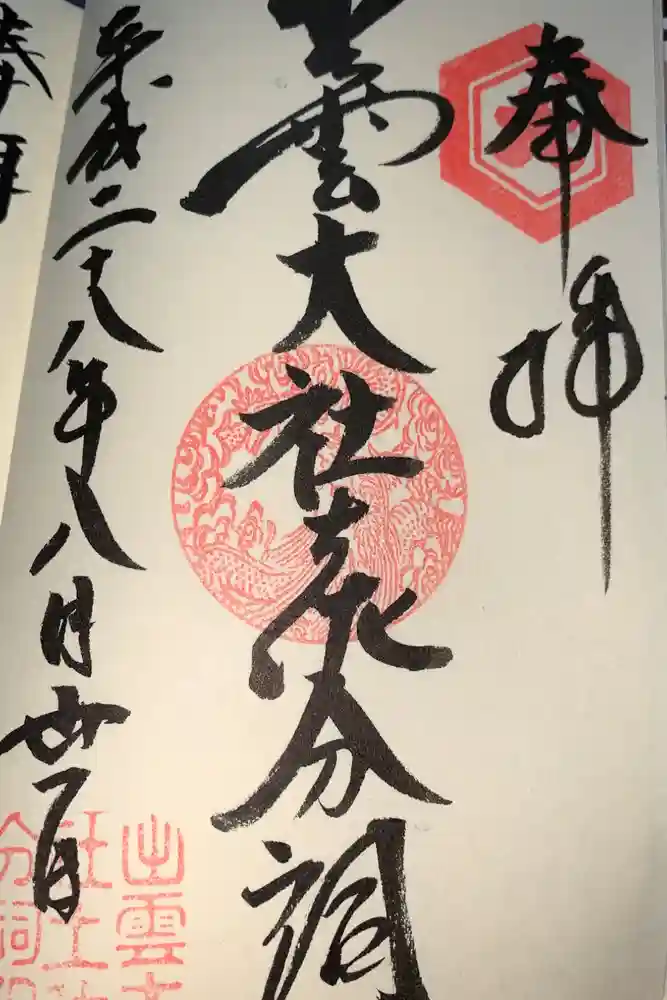 奉拝
出雲大社土佐分祠
平成二十八年八月廿一日
出雲大
社土佐
分祠
奉拝